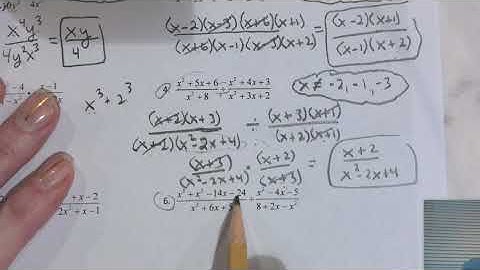 x⁴y³ / 4y²x³ = xy / 4
(x-2)(x-3)(x+6)(x+1) / (x+6)(x-1)(x-3)(x+2) = (x-2)(x+1) / (x-1)(x+2)
x³+2³
x²+5x+6 / x³+8 ÷ x²+4x+3 / x²+3x+2
x ≠ -2, -1, -3
(x+2)(x+3) / (x+1)(x²-2x+4) ÷ (x+3)(x+1) / (x+2)(x+1)
(x+3) / (x²-2x+4) · (x+2) / (x+3) = x+2 / x²-2x+4
+x-2 / 2x²+x-1
6. x³+x²-14x-24 / x²+6x+ x²-4x-5 / 8+2x-x²